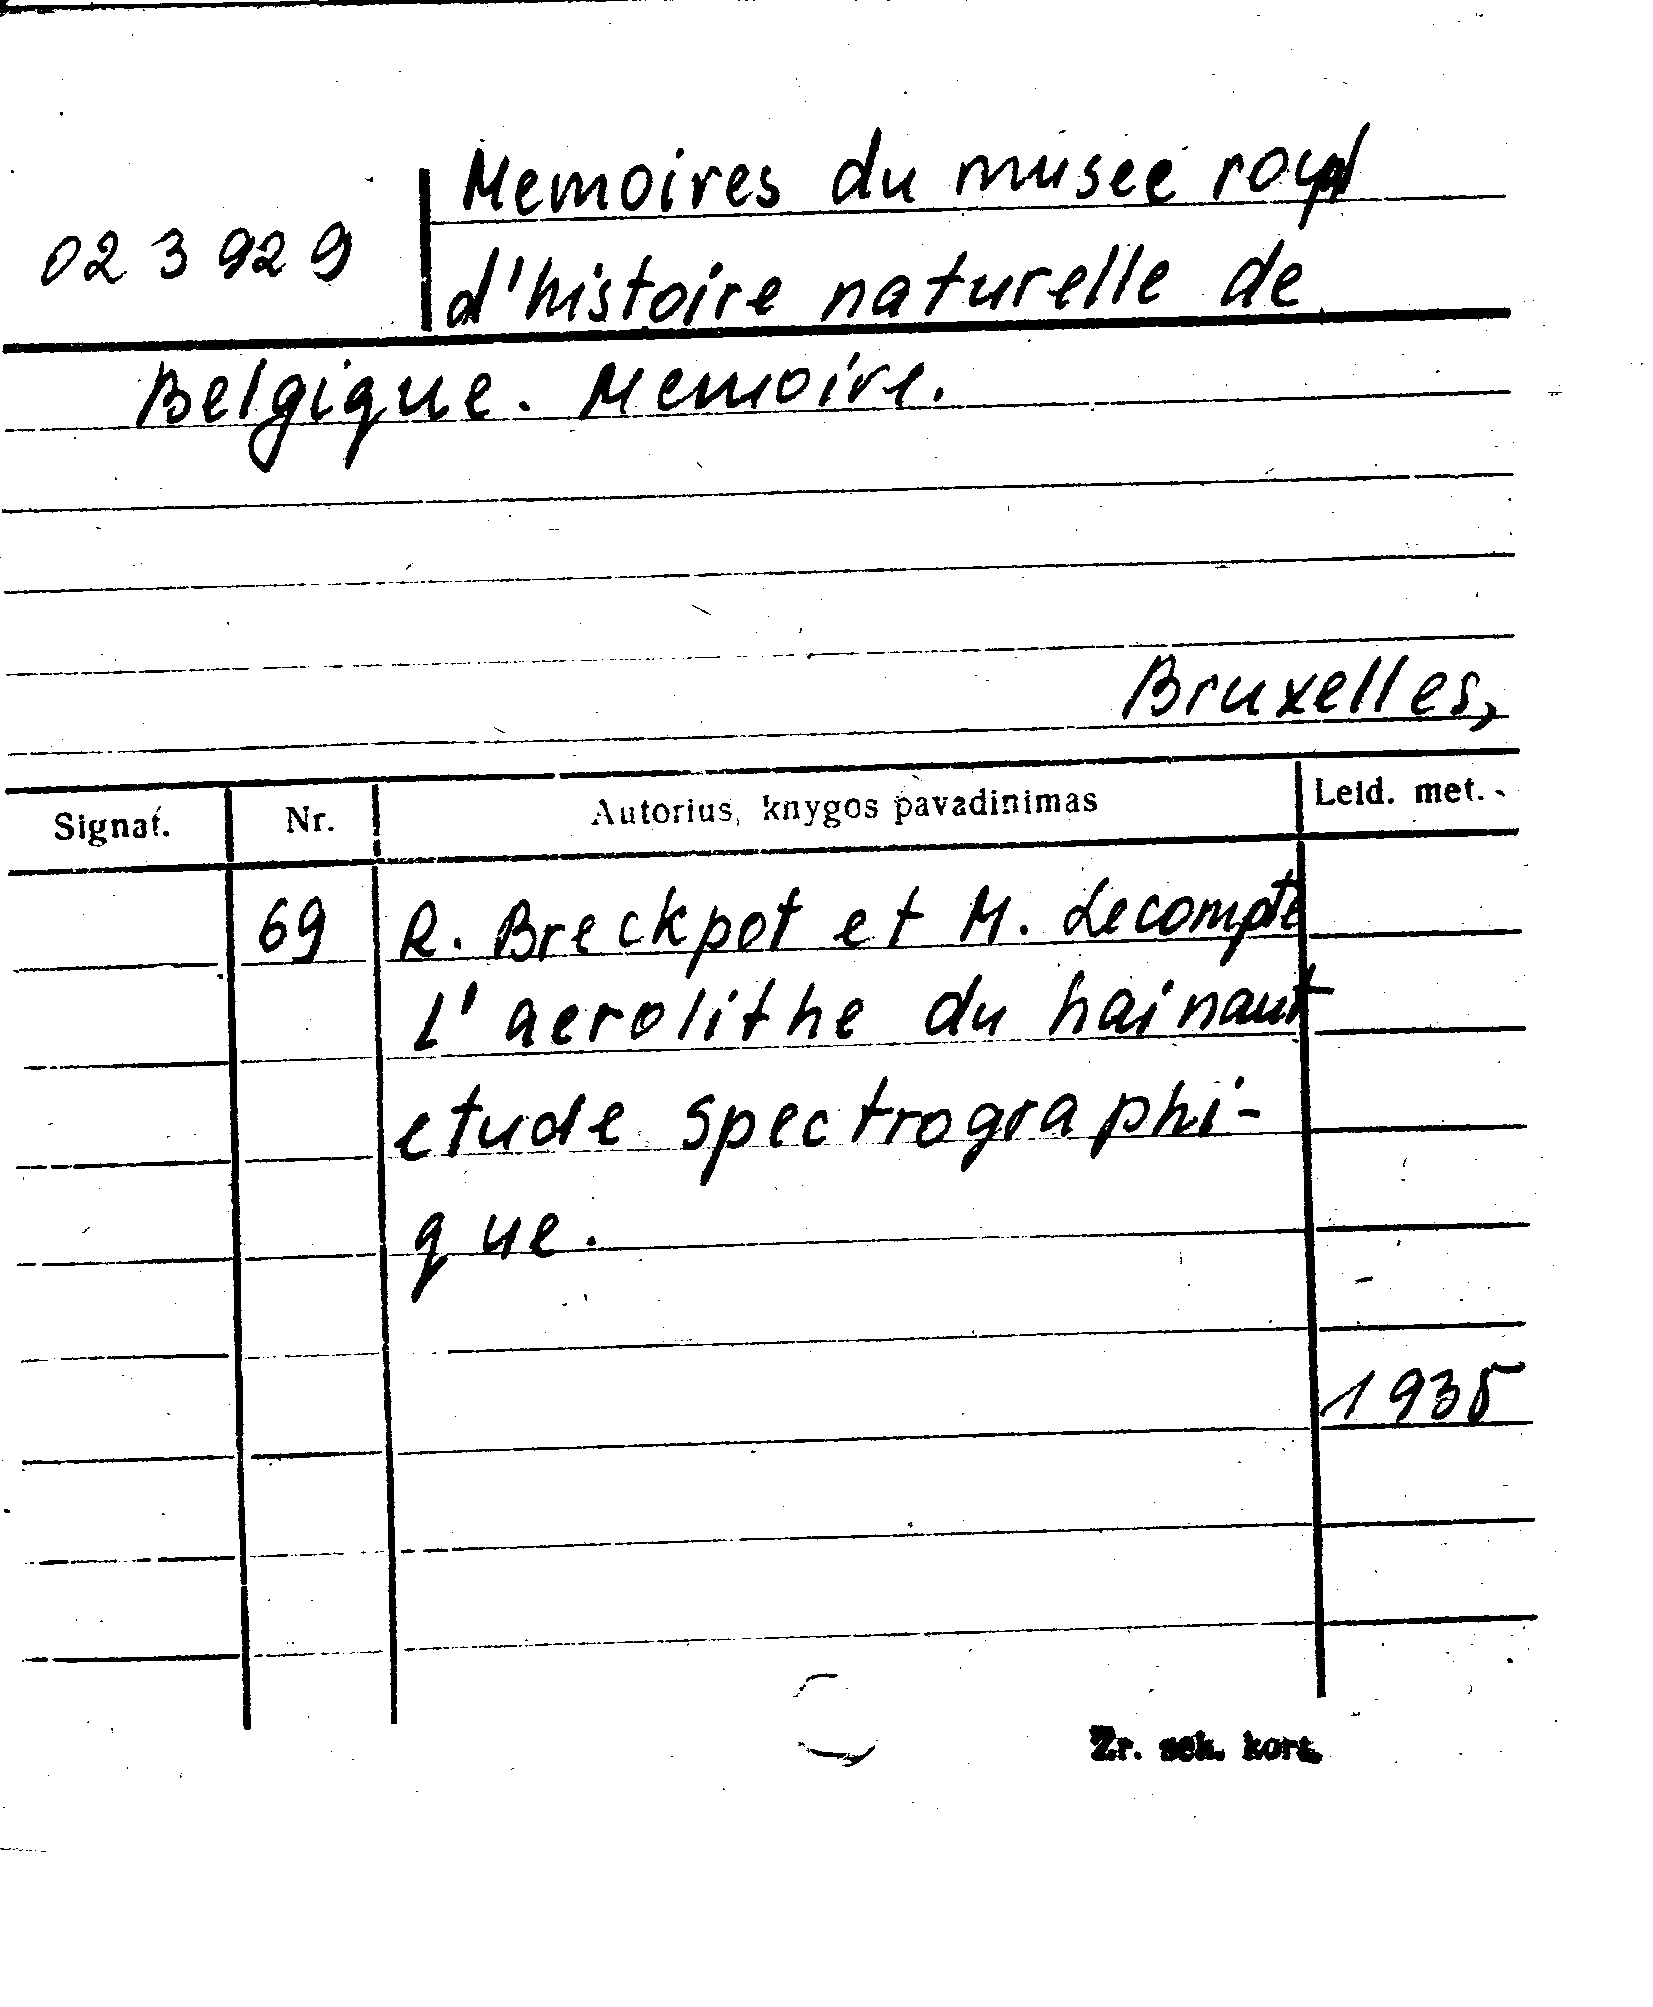 Memoires du musee royal
023929
d'histoire naturelle de
Belgique. Memoire.
Bruxelles,
Signat. Nr. Autorius, knygos pavadinimas Leid. met.
69 R. Breckpot et M. Lecompte
L'aerolithe du hainaut
etude spectrographi-
que.
1935
Zr. sek. kort.